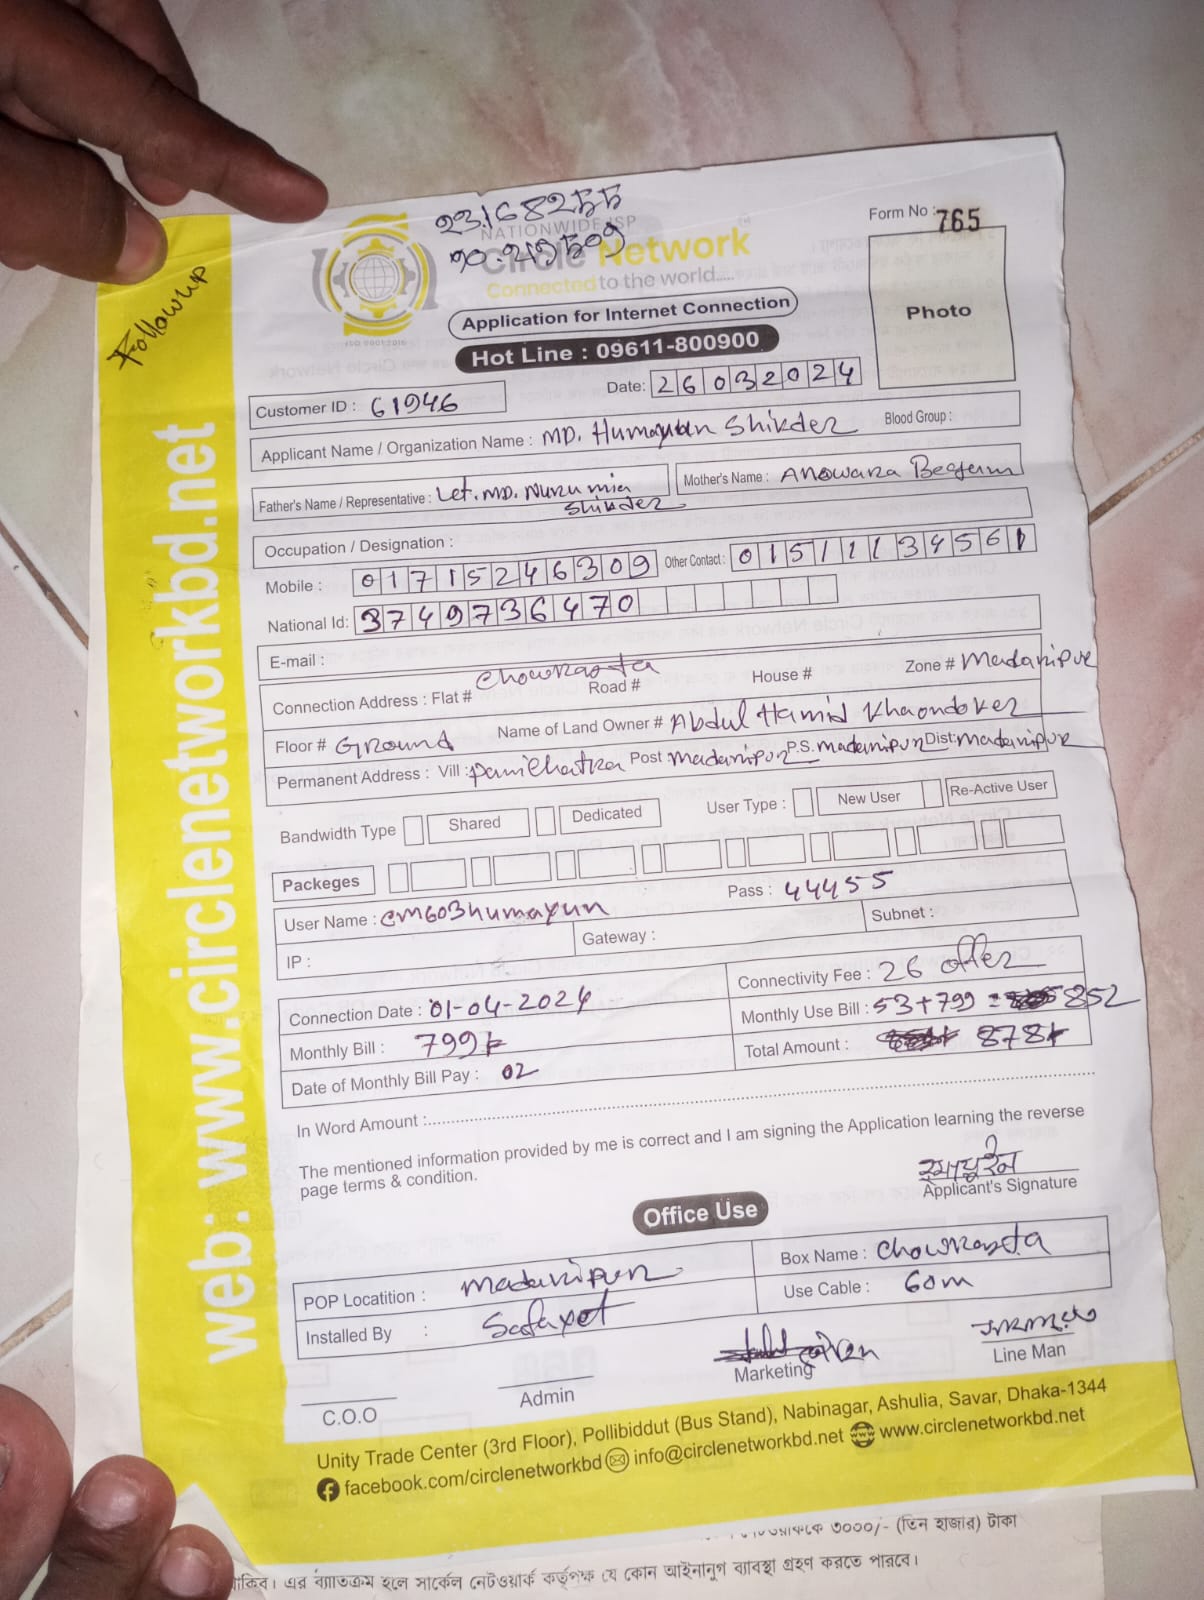 Followup
web: www.circlenetworkbd.net
23.168255
NATIONWIDE ISP
90.219509
Circle Network
Connected to the world.....
ISO 9001:2015
Form No : 765
Photo
Application for Internet Connection
Hot Line : 09611-800900
Customer ID : 61946
Date: 26032024
Applicant Name / Organization Name : MD. Humayuan Shikder Blood Group :
Father's Name / Representative : Let. MD. Nuru mia Shikder
Mother's Name : Anowara Begum
Occupation / Designation :
Mobile : 01715246309 Other Contact : 01511134561
National Id: 3749736470
E-mail :
Connection Address : Flat # Chowrasta Road # House # Zone # Madaripur
Floor # Ground Name of Land Owner # Abdul Hamid Khaondoker
Permanent Address : Vill : Panichatra Post Madaripur P.S. madaripur Dist: madaripur
Bandwidth Type Shared Dedicated User Type : New User Re-Active User
Packeges
User Name : cm603humayun Pass : 44455
IP : Gateway : Subnet :
Connection Date : 01-04-2024 Connectivity Fee : 26 offer
Monthly Bill : 799৳ Monthly Use Bill : 53+799 = 852
Date of Monthly Bill Pay : 02 Total Amount : 878৳
In Word Amount :
The mentioned information provided by me is correct and I am signing the Application learning the reverse
page terms & condition.
হুমায়ুন
Applicant's Signature
Office Use
POP Locatition : Madaripur Box Name : Chowrasta
Installed By : Safayet Use Cable : 60m
C.O.O Admin Marketing Line Man
Unity Trade Center (3rd Floor), Pollibiddut (Bus Stand), Nabinagar, Ashulia, Savar, Dhaka-1344
facebook.com/circlenetworkbd info@circlenetworkbd.net www.circlenetworkbd.net
৩০০০/- (তিন হাজার) টাকা
থাকিব। এর ব্যাতিক্রম হলে সার্কেল নেটওয়ার্ক কর্তৃপক্ষ যে কোন আইনানুগ ব্যাবস্থা গ্রহণ করতে পারবে।